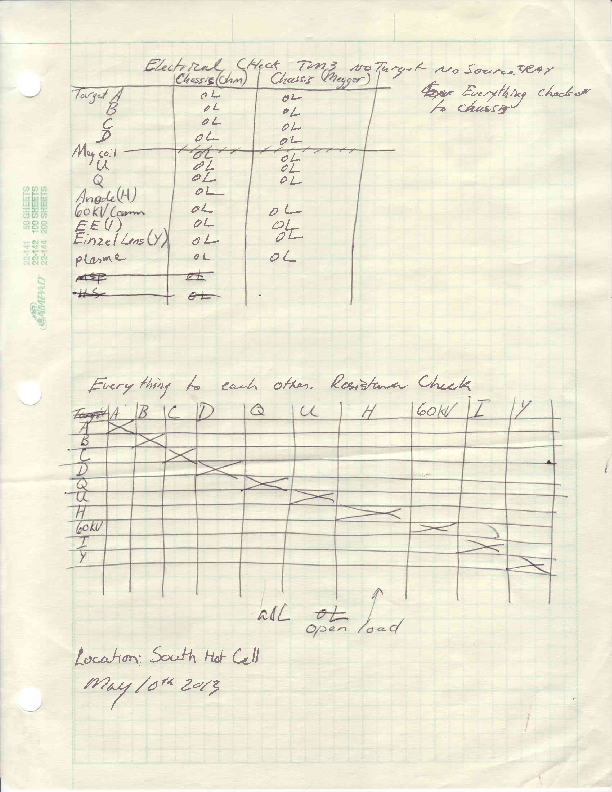 Electrical Check TM3 No Target No Source TRAY
Chassis (Ohm) Chassis (Megger)
Everything checked
to chassis
Target A OL OL
B OL OL
C OL OL
D OL OL
Mag coil OL OL
U OL OL
Q OL OL
Anode (H) OL
60KV Comm OL OL
EE (I) OL OL
Einzel Lens (Y) OL OL
plasma OL OL
OL
HS OL
22-141 50 SHEETS
22-142 100 SHEETS
22-144 200 SHEETS
AMPAD
Everything to each other. Resistance Check
Target A B C D Q U H 60KV I Y
A
B
C
D
Q
U
H
60KV
I
Y
all OL
open load
Location: South Hot Cell
May 10th 2013